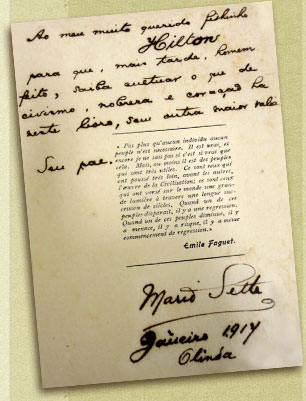 Ao meu muito querido filhinho
Hilton
para que, mais tarde, homem
feito, saiba cultuar o que de
civismo, nobreza e coração ha
neste livro, sem outro maior valor
Seu pae.
« Pas plus qu'aucun individu aucun
peuple n'est nécessaire. Il est vrai, et
encore je ne sais pas si c'est si vrai que
cela. Mais, au moins il est des peuples
qui sont très utiles. Ce sont ceux qui
ont poussé très loin, avant les autres,
l'œuvre de la Civilisation; ce sont ceux
qui ont versé sur le monde une gran-
de lumière à travers une longue suc-
cession de siècles. Quand un de ces
peuples disparaît, il y a une regression.
Quand un de ces peuples diminue, il y
a menace, il y a risque, il y a même
commencement de regression.»
Emile Faguet.
Mario Sette
Janeiro 1917
Olinda